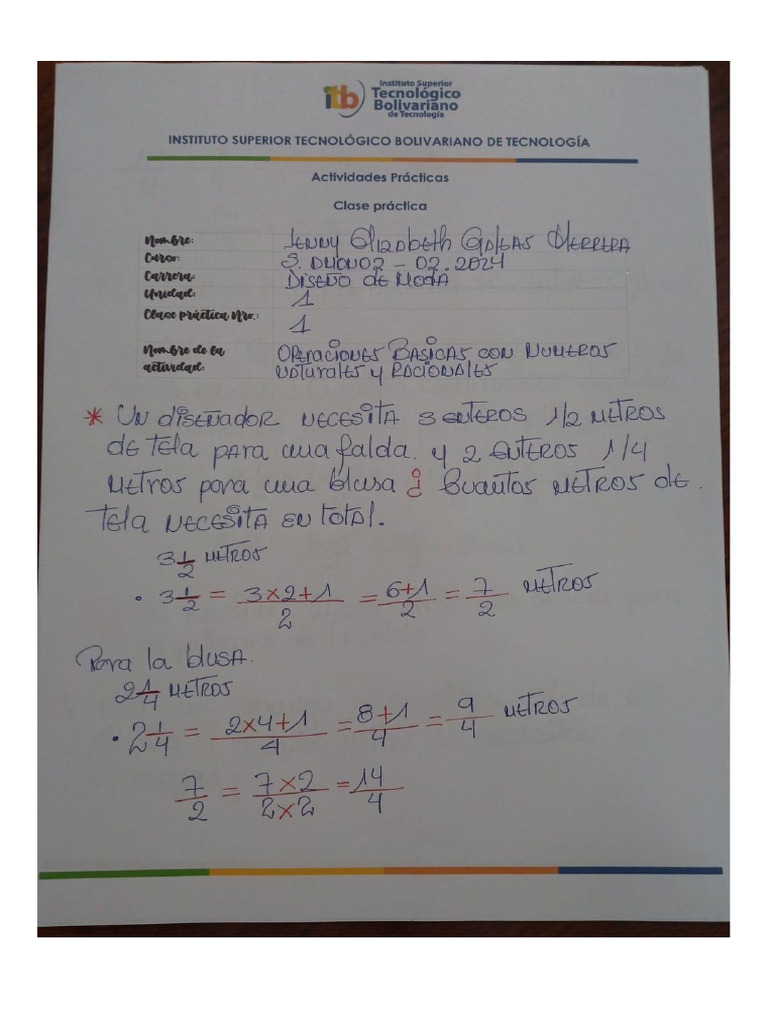 itb Instituto Superior
Tecnológico
Bolivariano
de Tecnología
INSTITUTO SUPERIOR TECNOLÓGICO BOLIVARIANO DE TECNOLOGÍA
Actividades Prácticas
Clase práctica
Nombre: Jenny Elizabeth Galeas Herrera
Curso: 02 - 02. 2024
Carrera: Diseño de Moda
Unidad: 1
Clase práctica Nro.: 1
Nombre de la Operaciones Basicas con Numeros
actividad: Naturales y Racionales
* Un diseñador necesita 3 enteros 1/2 metros
de tela para una falda. y 2 enteros 1/4
metros para una blusa ¿ Cuantos metros de
tela necesita en total.
3 1/2 metros
• 3 1/2 = 3x2+1/2 = 6+1/2 = 7/2 metros
Para la blusa.
2 1/4 metros
• 2 1/4 = 2x4+1/4 = 8+1/4 = 9/4 metros
7/2 = 7x2/2x2 = 14/4